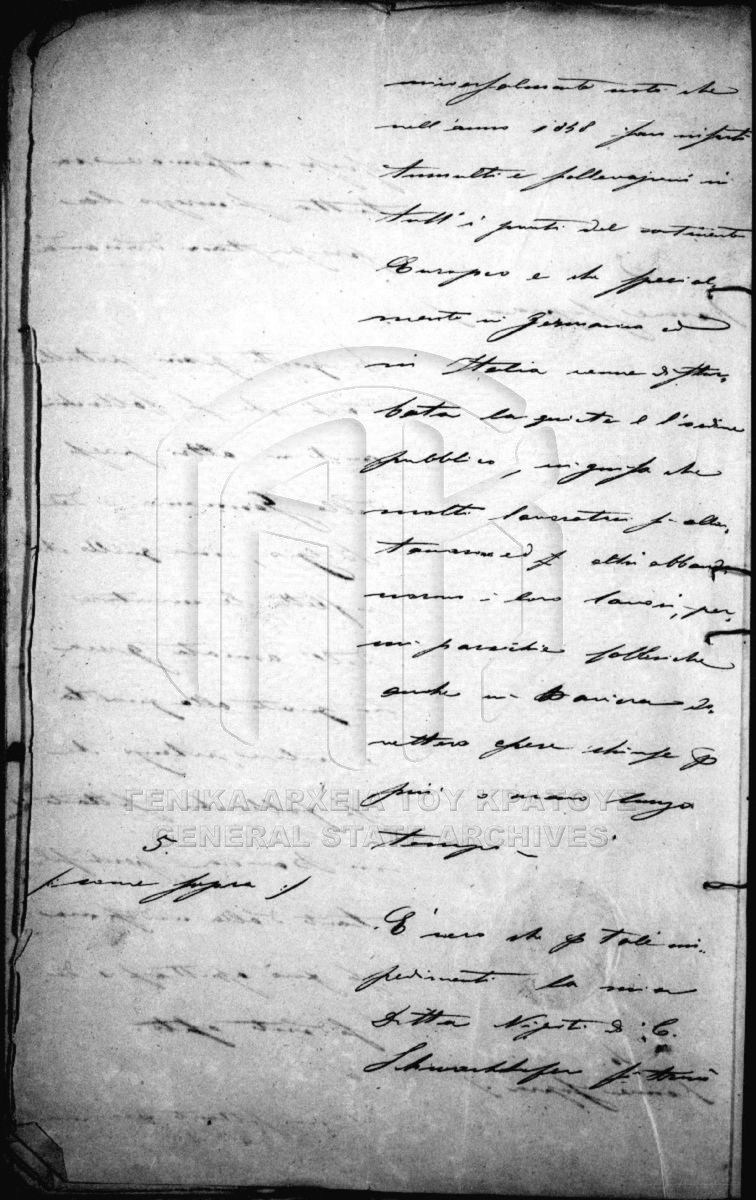 universalmente noto che
nell'anno 1848 furon insorti
tumulti e sollevazioni in
tutt'i punti del continente
Europeo e che special-
mente in Germania ed
in Italia venne distur-
bata la quiete e l'ordine
pubblico, in guisa che
molti lavoratori
ed altri abbando-
narono i loro lavori, per
fabbriche
anche in Baviera do-
vettero essere chiuse p
più o meno lungo
tempo –
5.
(come sopra :)
È vero che p tali im-
pedimenti la mia
Ditta Nipoti di C.
ΓΕΝΙΚΑ ΑΡΧΕΙΑ ΤΟΥ ΚΡΑΤΟΥΣ
GENERAL STATE ARCHIVES